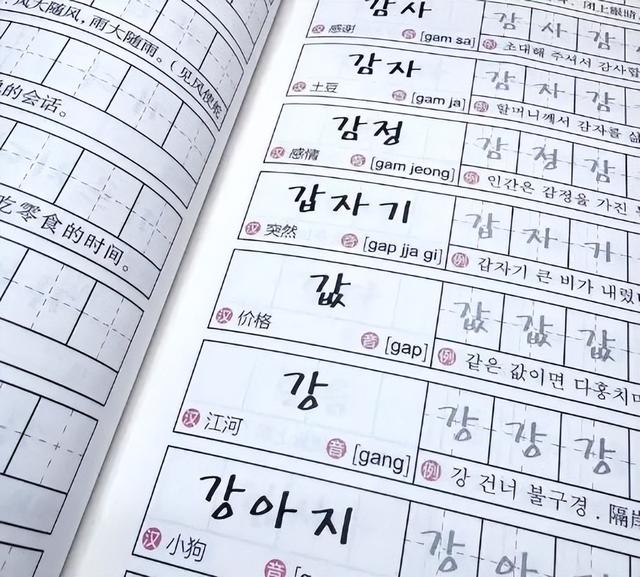 风大随风，雨大随雨。（见风使舵
的会话。
吃零食的时间。
闭上眼睛
감사 감 사 감
汉 感谢 音 [gam sa] 例 초대해 주셔서 감사합
감자 감 자 감
汉 土豆 音 [gam ja] 例 할머니께서 감자를 삶
감정 감 정 감
汉 感情 音 [gam jeong] 例 인간은 감정을 가진
갑자기 갑 자 기
汉 突然 音 [gap jja gi] 例 갑자기 큰 비가 내렸
값 값 값 값
汉 价格 音 [gap] 例 같은 값이면 다홍치마
강 강 강 강
汉 江河 音 [gang] 例 강 건너 불구경 . 隔岸
강아지 강 아
汉 小狗 音